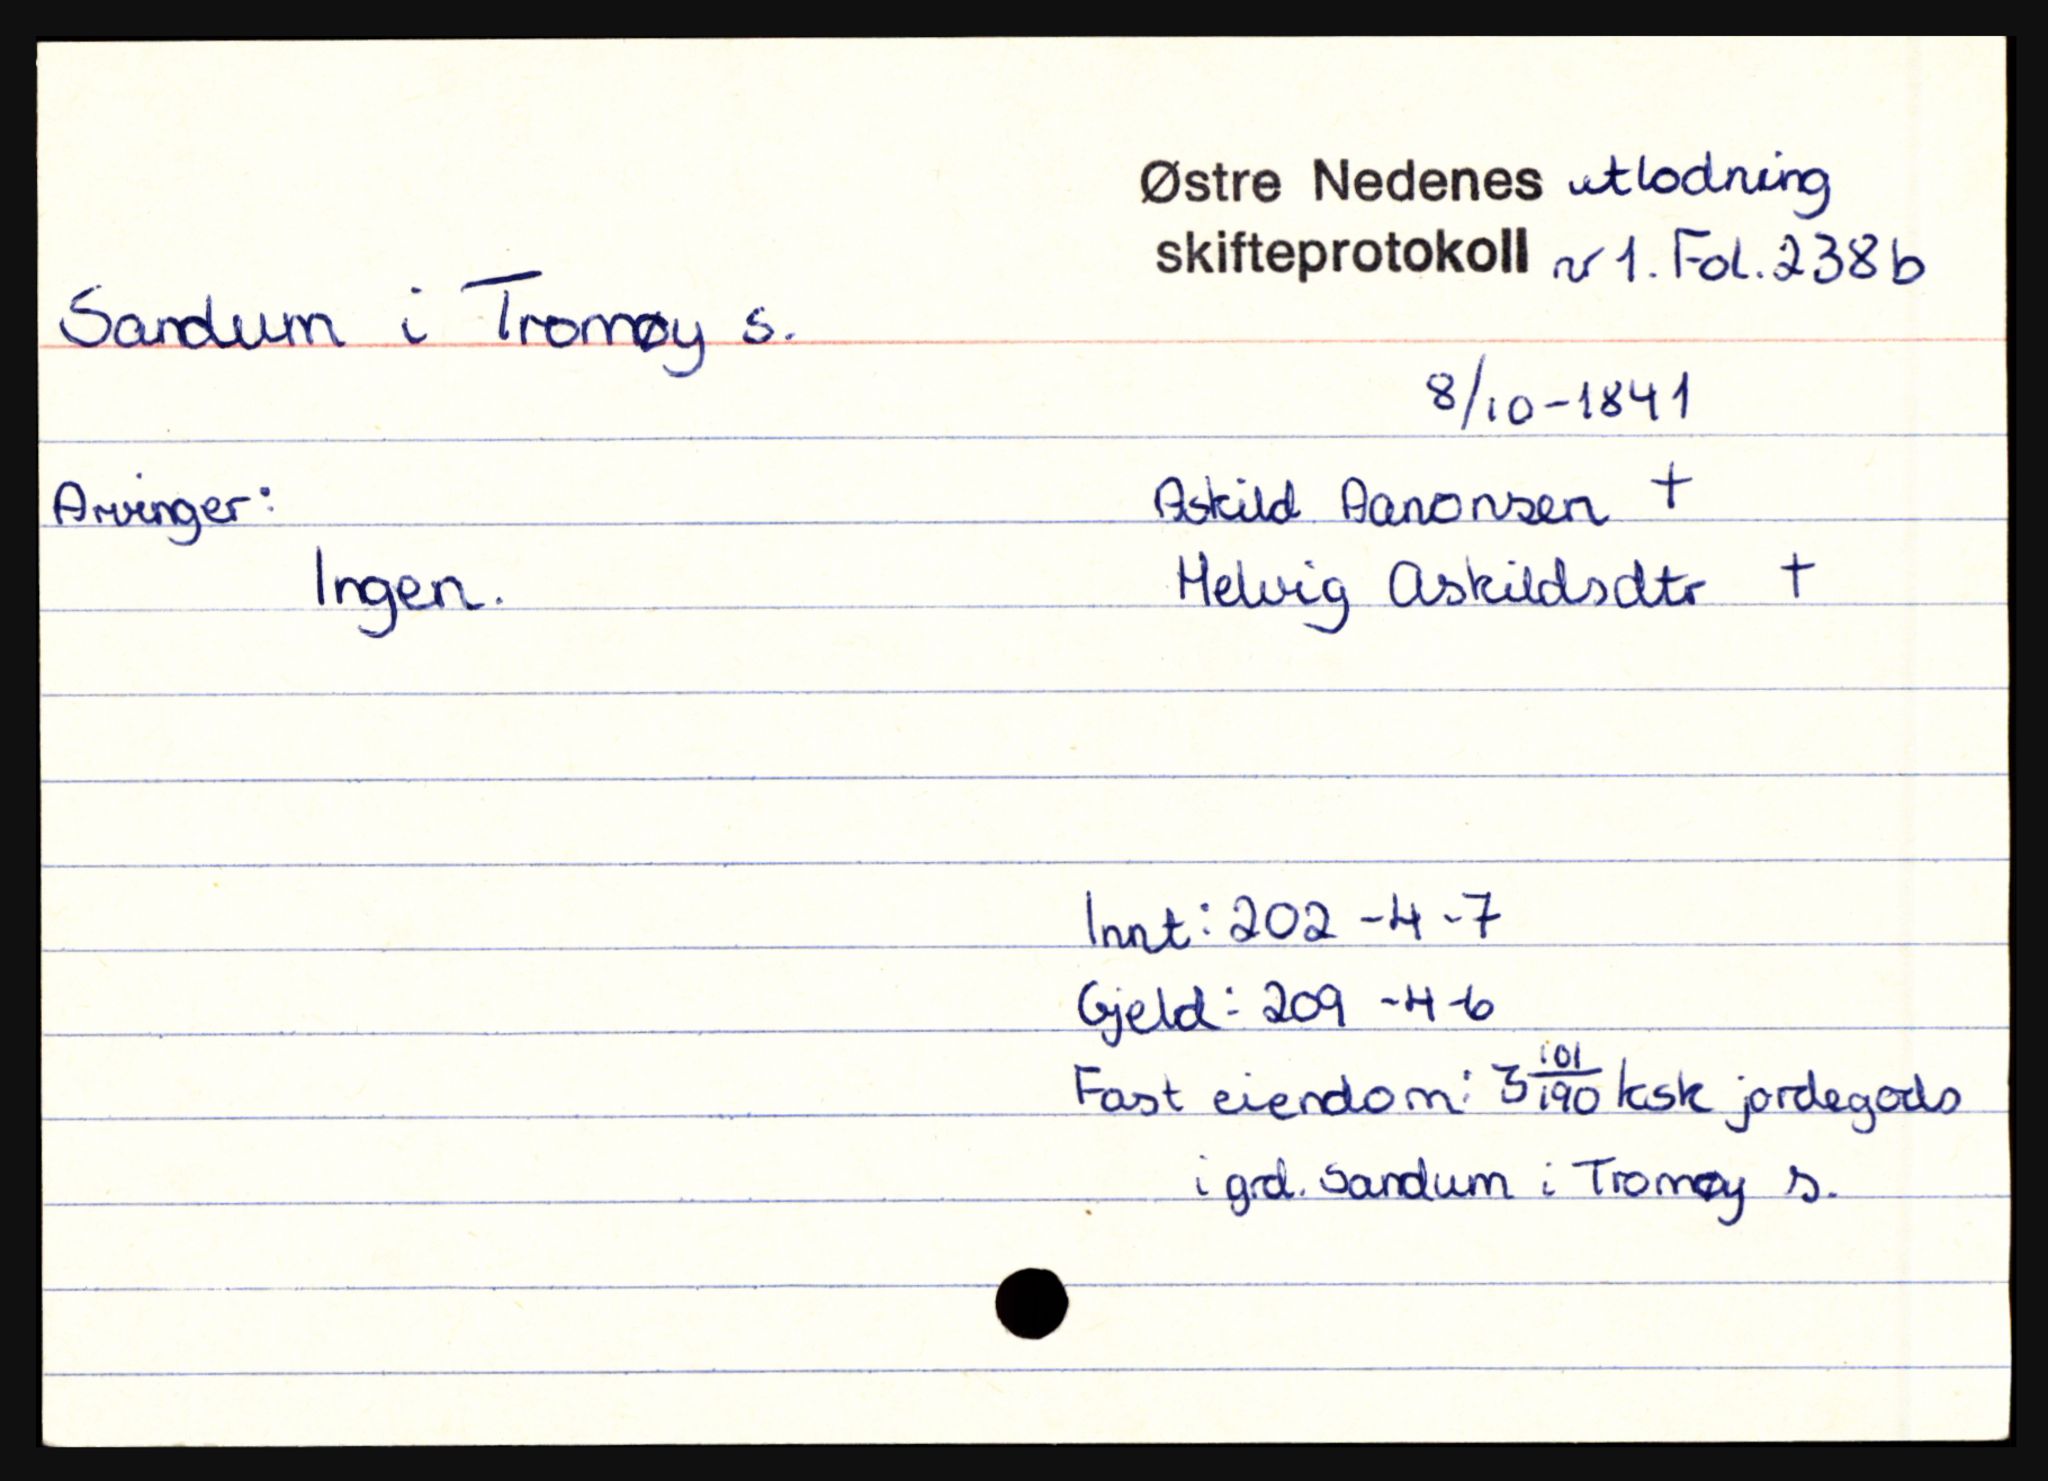 Østre Nedenes utlodning
skifteprotokoll nr 1. Fol. 238b
Sandum i Tromøy s.
8/10-1841
Arvinger:
Askild Aanonsen +
Ingen.
Helvig Askildsdtr +
Innt: 202 -4 -7
Gjeld: 209 -4 -6
Fast eiendom: 3 101/190 ksk jordegods
i grd. Sandum i Tromøy s.